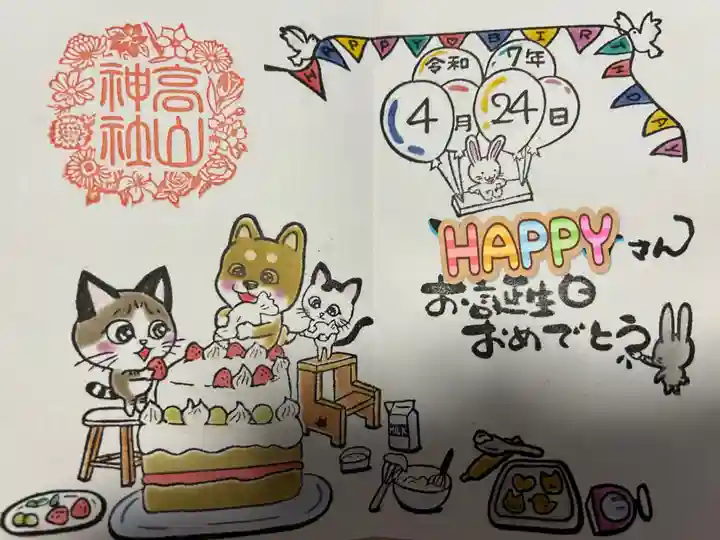 高山
神社
HAPPY BIRTHDAY
令和 7年
4月 24日
HAPPYさん
お誕生日
おめでとう
MILK